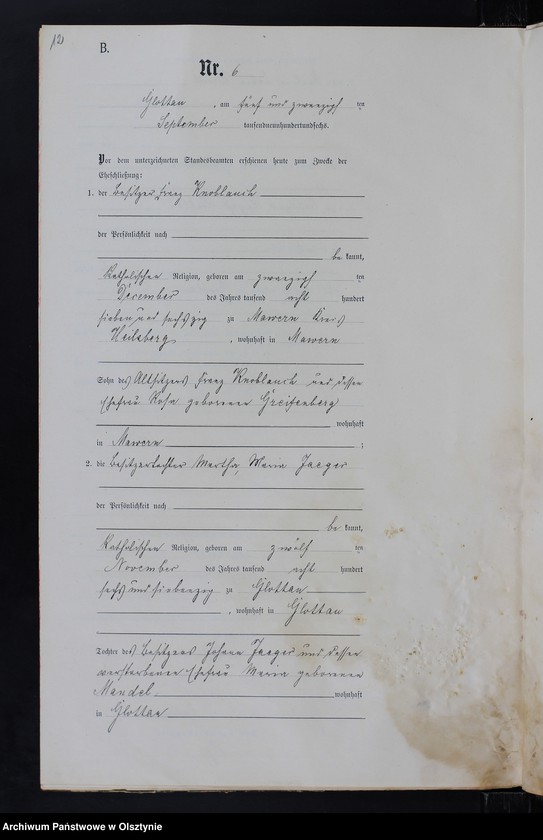 121
B.
Nr. 6
Glottau, am fünf und zwanzigsten
September tausendneunhundertundsechs.
Vor dem unterzeichneten Standesbeamten erschienen heute zum Zwecke der
Eheschließung:
1. der Besitzer Franz Knoblauch
der Persönlichkeit nach
be kannt,
katholischer Religion, geboren am zwanzigsten
December des Jahrs tausend acht hundert
sieben und sechszig zu Mawern Kreis
Heilsberg, wohnhaft in Mawern
Sohn des Altsitzers Franz Knoblauch und dessen
Ehefrau Rosa geborenen Greifenberg
wohnhaft
in Mawern ;
2. die Besitzertochter Martha, Maria Jaeger
der Persönlichkeit nach
be kannt,
katholischer Religion, geboren am zwölften
November des Jahrs tausend acht hundert
sechs und siebenzig zu Glottau
, wohnhaft in Glottau
Tochter des Besitzers Johann Jaeger und dessen
verstorbenen Ehefrau Maria geborenen
Mandel wohnhaft
in Glottau
Archiwum Państwowe w Olsztynie